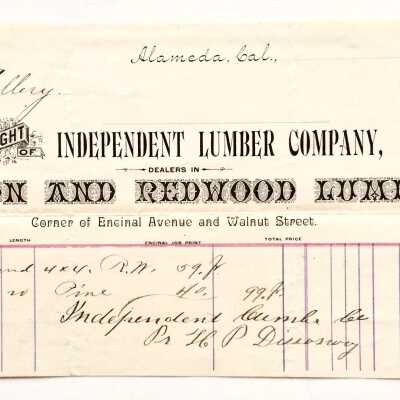 Alameda, Cal.,
GHT
OF
INDEPENDENT LUMBER COMPANY,
DEALERS IN
ON AND REDWOOD LUM
Corner of Encinal Avenue and Walnut Street.
LENGTH ENCINAL JOB PRINT TOTAL PRICE
4x4. 59
Pine 40. 99
Independent Lumb. Co
Pr H P